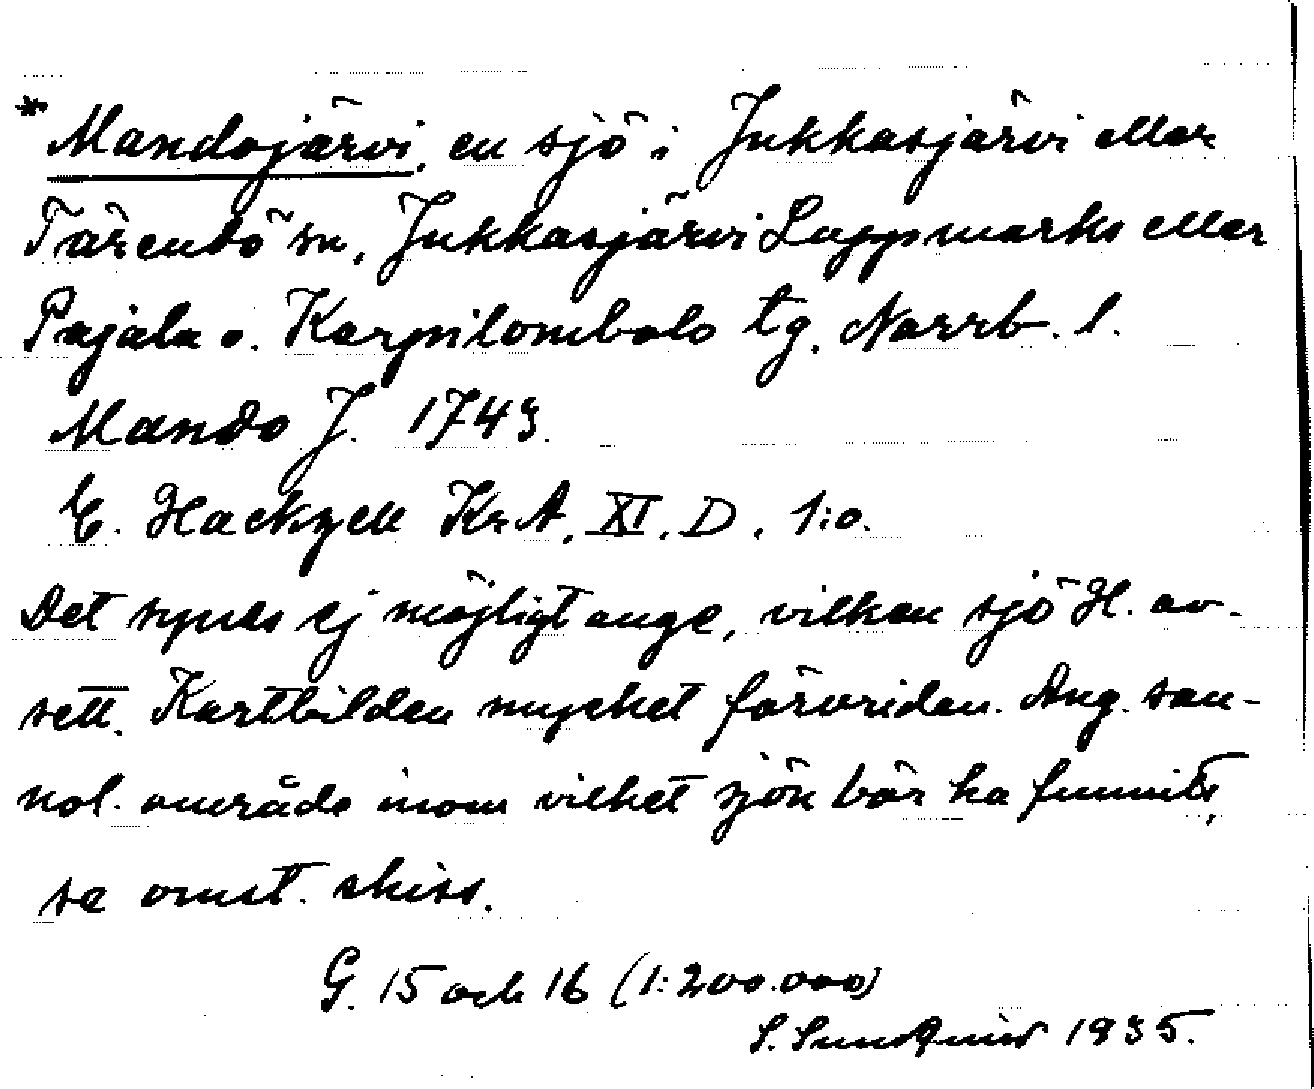 * Mandojärvi, en sjö i Jukkasjärvi eller
Tärendö sn, Jukkasjärvi Lappmarks eller
Pajala o. Korpilombolo tg. Norrb. l.
Mando J. 1743.
E. Hackzell KrA, XI. D. 1:o.
Det synes ej möjligt ange, vilken sjö H. av-
sett. Kartbilden mycket förvriden. Ang. san-
nol. område inom vilket sjön bör ha funnits,
se omst. skiss.
G. 15 och 16 (1:200.000)
S. Sundqvist 1935.